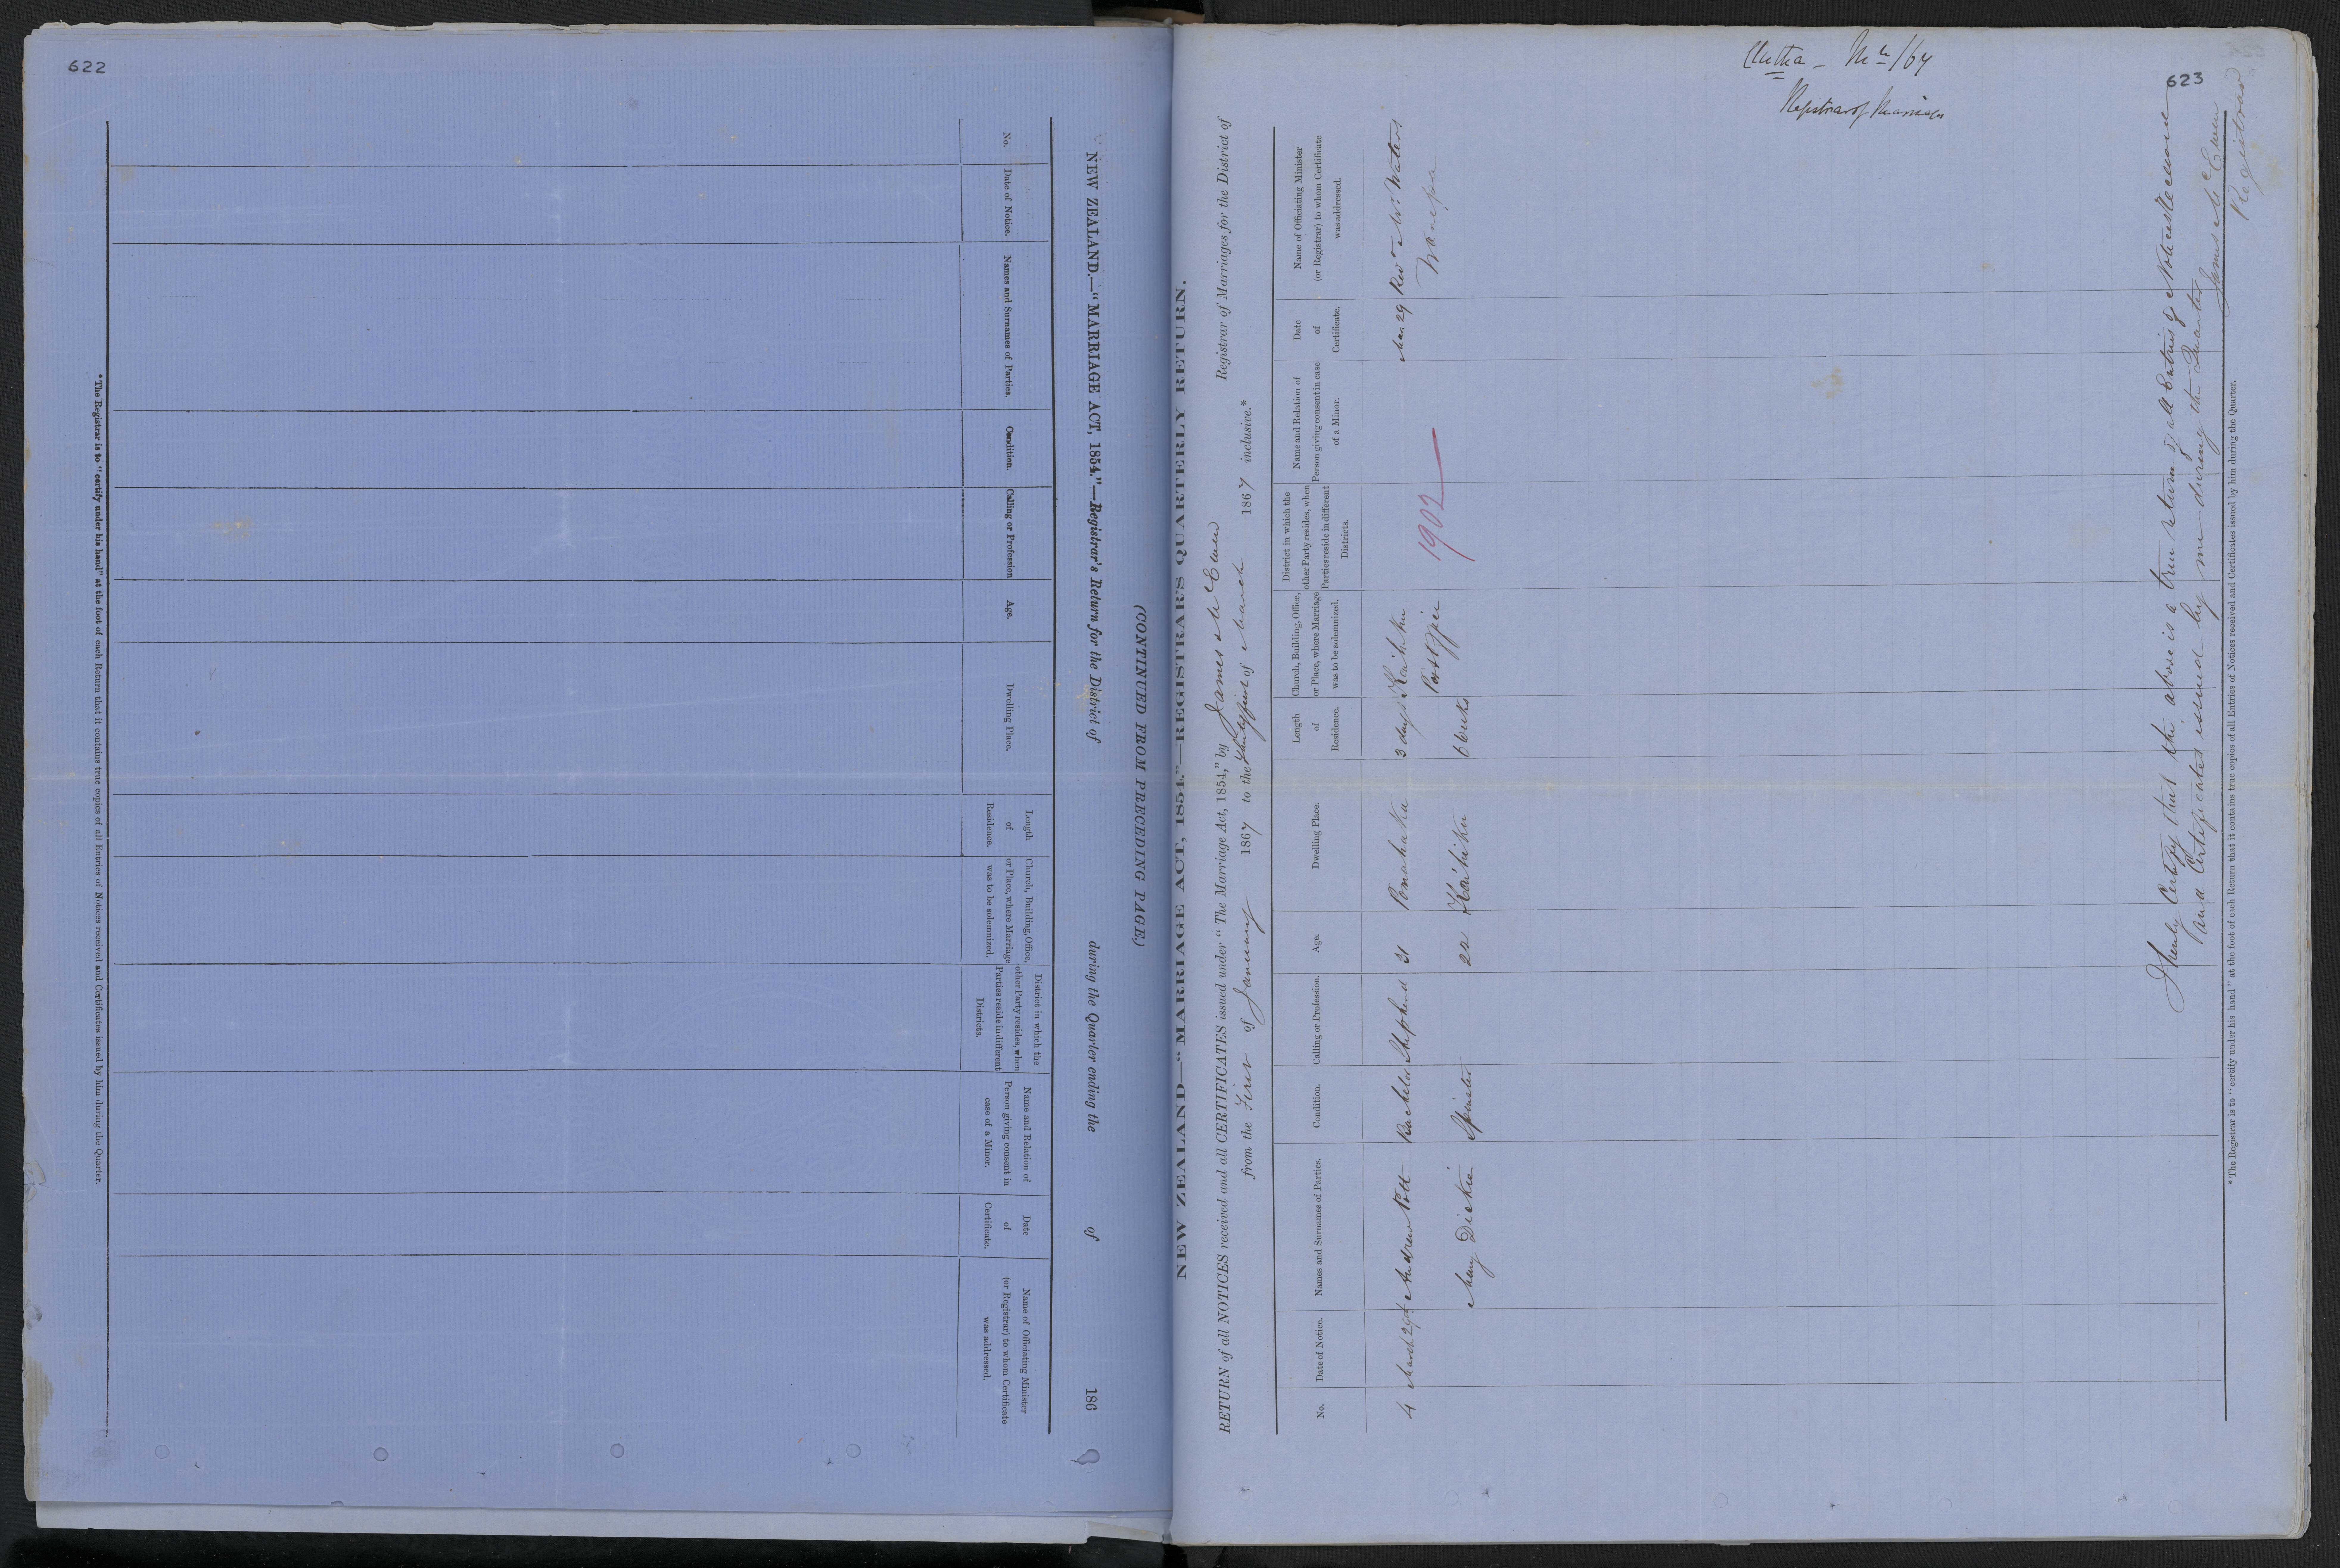 622
(CONTINUED FROM PRECEDING PAGE.)
NEW ZEALAND.—"MARRIAGE ACT, 1854."—Registrar's Return for the District of during the Quarter ending the of 186
No.
Date of Notice.
Names and Surnames of Parties.
Condition.
Calling or Profession
Age.
Dwelling Place.
Length
of
Residence.
Church, Building, Office,
or Place, where Marriage
was to be solemnized.
District in which the
other Party resides, when
Parties reside in different
Districts.
Name and Relation of
Person giving consent in
case of a Minor.
Date
of
Certificate.
Name of Officiating Minister
(or Registrar) to whom Certificate
was addressed.
*The Registrar is to "certify under his hand" at the foot of each Return that it contains true copies of all Entries of Notices received and Certificates issued by him during the Quarter.
623
Clutha - Mch/67
Registrar of Marriages
NEW ZEALAND.—"MARRIAGE ACT, 1854."—REGISTRAR'S QUARTERLY RETURN.
RETURN of all NOTICES received and all CERTIFICATES issued under "The Marriage Act, 1854," by James McEwen Registrar of Marriages for the District of
from the First of January 1867 to the of March 1867 inclusive.*
No.
Date of Notice.
Names and Surnames of Parties.
Condition.
Calling or Profession.
Age.
Dwelling Place.
Length
of
Residence.
Church, Building, Office,
or Place, where Marriage
was to be solemnized.
District in which the
other Party resides, when
Parties reside in different
Districts.
Name and Relation of
Person giving consent in case
of a Minor.
Date
of
Certificate.
Name of Officiating Minister
(or Registrar) to whom Certificate
was addressed.
4 March 29th Andrew Pott Bachelor Shepherd 31 Pomahaka 3 days Kaihiku Mar. 29 Revd Mr. Waters
Post Office 1902 Warepa
Mary Dickie Spinster 22 Kaihiku 6 weeks
I hereby Certify that the above is a true return of all Entries of Notices Received
and Certificates issued by me during the Quarter
James McEwen
Registrar
*The Registrar is to "certify under his hand" at the foot of each Return that it contains true copies of all Entries of Notices received and Certificates issued by him during the Quarter.